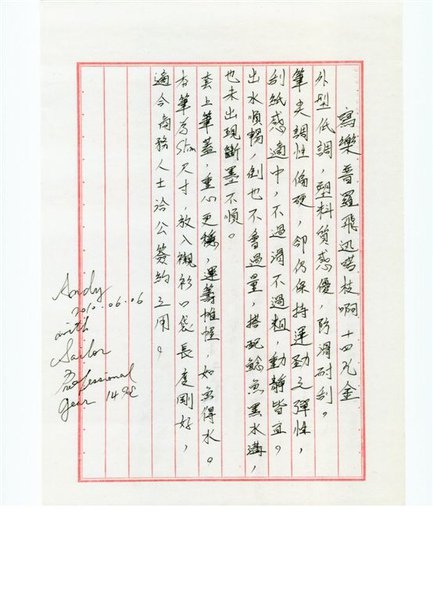 寫樂普羅飛迅啱枝啊十四K金
外型低調，塑料質感優，防滑耐刮。
筆尖調性偏硬，卻仍保持運動之彈性，
刮紙感適中，不過滑不過粗，動靜皆宜。
出水順暢，倒也不會過量，搭配鯰魚墨水滿，
也未出現斷墨不順。
套上筆蓋，重心更穩，運籌帷幄，如魚得水。
本筆為 尺寸，放入襯衫口袋長度剛好，
適合商務人士洽公簽約之用。
Andy
2010.06.06
with
Sailor
Professional
Gear 14K